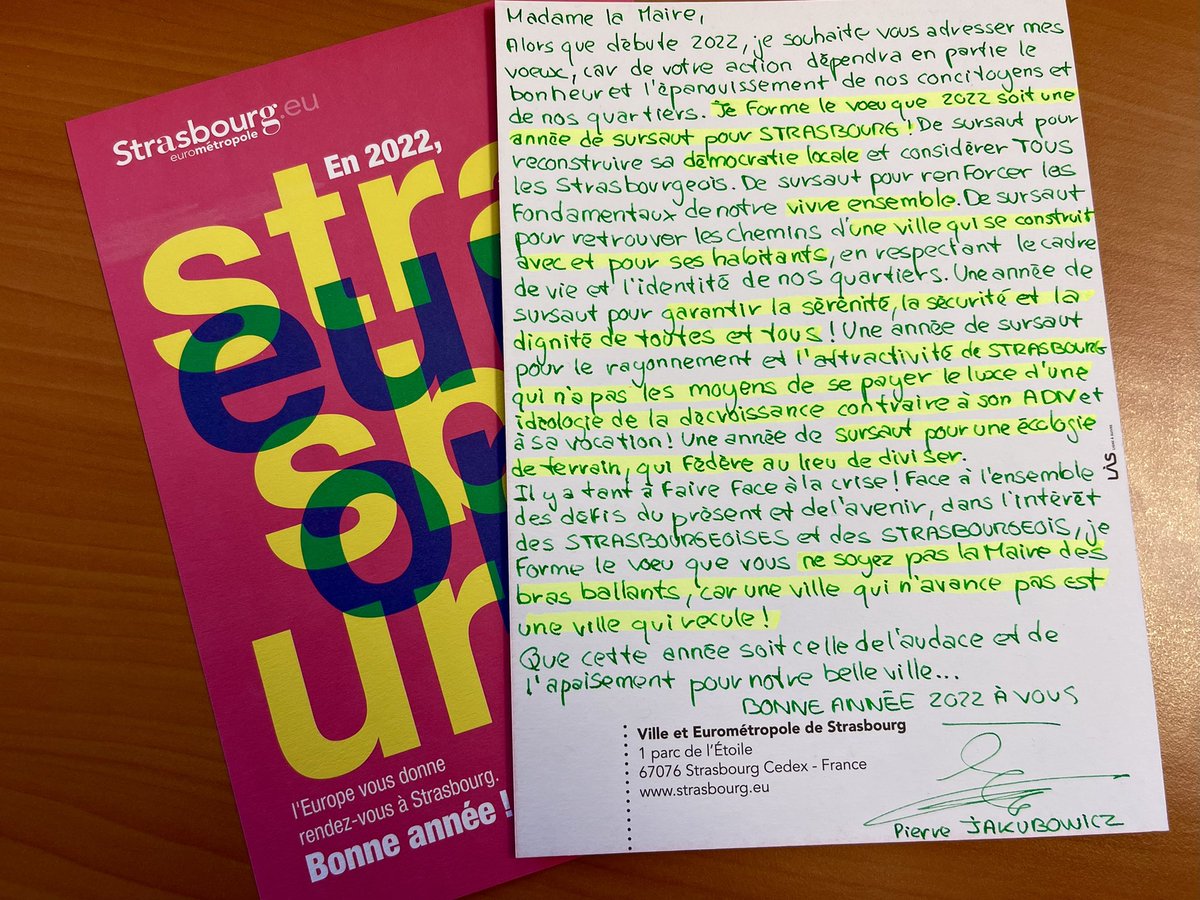 Strasbourg.eu
eurométropole
En 2022,
stra
eu
sp
op
ur
l'Europe vous donne
rendez-vous à Strasbourg.
Bonne année !
Madame la Maire,
Alors que débute 2022, je souhaite vous adresser mes
voeux, car de votre action dépendra en partie le
bonheur et l'épanouissement de nos concitoyens et
de nos quartiers. Je forme le voeu que 2022 soit une
année de sursaut pour STRASBOURG ! De sursaut pour
reconstruire sa démocratie locale et considérer TOUS
les Strasbourgeois. De sursaut pour renforcer les
fondamentaux de notre vivre ensemble. De sursaut
pour retrouver les chemins d'une ville qui se construit
avec et pour ses habitants, en respectant le cadre
de vie et l'identité de nos quartiers. Une année de
sursaut pour garantir la sérénité, la sécurité et la
dignité de toutes et tous ! Une année de sursaut
pour le rayonnement et l'attractivité de STRASBOURG
qui n'a pas les moyens de se payer le luxe d'une
idéologie de la décroissance contraire à son ADN et
à sa vocation ! Une année de sursaut pour une écologie
de terrain, qui fédère au lieu de diviser.
Il y a tant à faire face à la crise ! Face à l'ensemble
des défis du présent et de l'avenir, dans l'intérêt
des STRASBOURGEOISES et des STRASBOURGEOIS, je
forme le voeu que vous ne soyez pas la Maire des
bras ballants, car une ville qui n'avance pas est
une ville qui recule !
Que cette année soit celle de l'audace et de
l'apaisement pour notre belle ville...
BONNE ANNÉE 2022 À VOUS
Ville et Eurométropole de Strasbourg
1 parc de l'Étoile
67076 Strasbourg Cedex - France
www.strasbourg.eu
Pierre JAKUBOWICZ